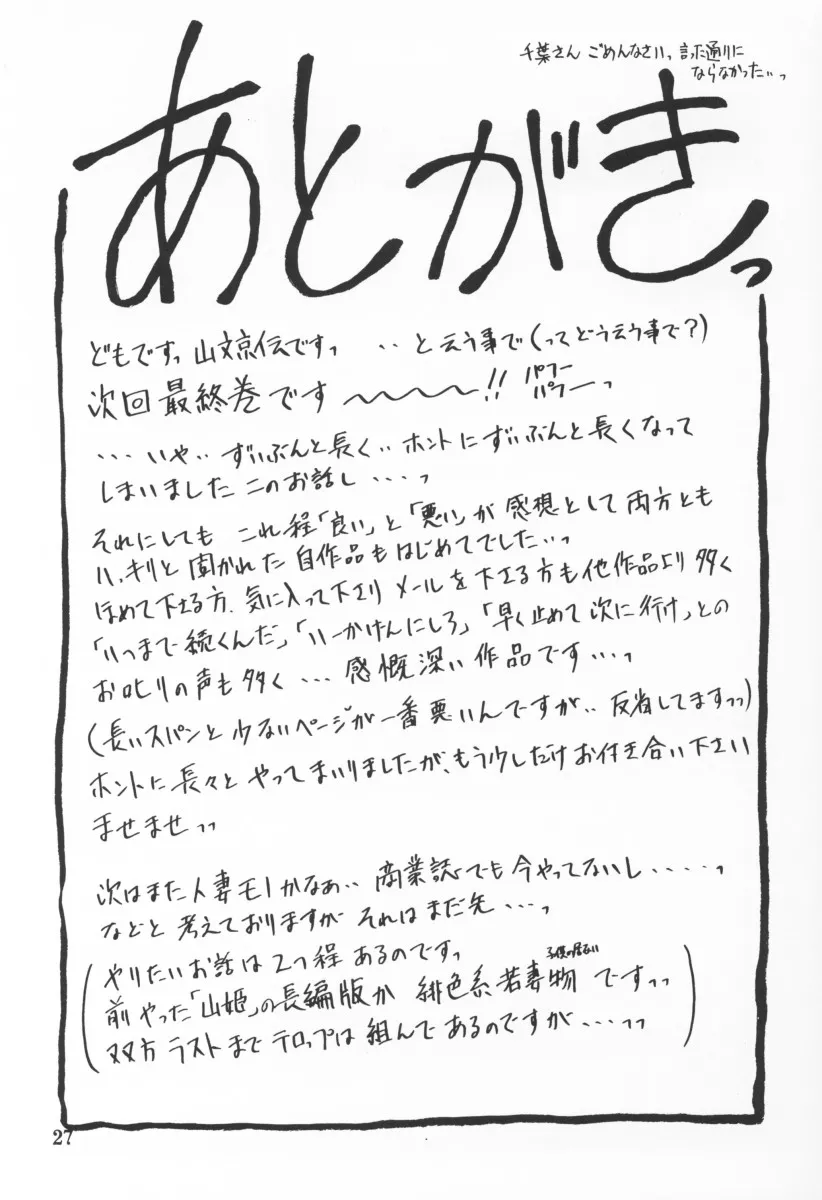 千葉さん ごめんなさいっ 言った通りに
ならなかった・・っ
あとがきっ
どもですっ 山文京伝ですっ ・・と云う事で(ってどう云う事で?)
次回最終巻です〜〜〜〜!! パフー
パフーっ
・・・いや・・ずいぶんと長く・・ホントにずいぶんと長くなって
しまいましたこのお話し・・・・っ
それにしても これ程「良い」と「悪い」が感想として両方とも
ハッキリと聞かれた自作品もはじめてでした・・・っ
ほめて下さる方、気に入って下さり メールを下さる方も他作品より多く
「いつまで続くんだ」「いーかげんにしろ」「早く止めて次に行け」との
お叱りの声も多く・・・感慨深い作品です・・・っ
(長いスパンと少ないページが一番悪いんですが・・反省してますっっ)
ホントに長々とやってまいりましたが、もう少しだけお付き合い下さい
ませませっっ
次はまた人妻モノかなぁ・・商業誌でも今やってないし・・・・・っ
などと考えておりますが それはまだ先・・・っ
(やりたいお話は2つ程あるのですっ
子供の居ない
前やった「山姫」の長編版か 緋色系若妻物ですっっ
双方ラストまでテロップは組んであるのですが・・・・っっ)
27